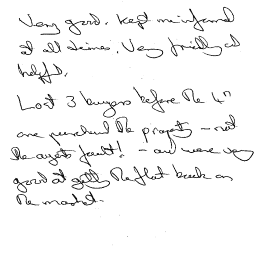 Very good. Kept me informed
at all times. Very friendly and
helpful.
Lost 3 buyers before the 4th
one purchased the property - not
the agents fault! - and were very
good at getting the flat back on
the market.